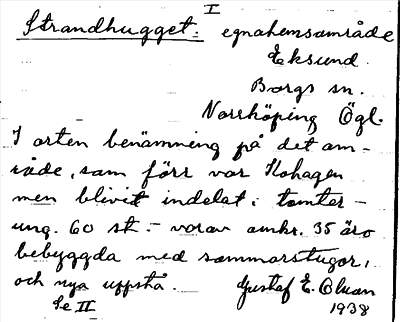 I
Strandhugget: egnahemsområde
Eksund.
Borgs sn.
Norrköping Ögl.
I orten benämning på det om-
råde, som förr var Kohagen
men blivit indelat i tomter -
ung. 60 st. - varav omkr. 35 äro
bebyggda med sommarstugor,
och nya uppstå. Gustaf E. Olsson
Se II 1938